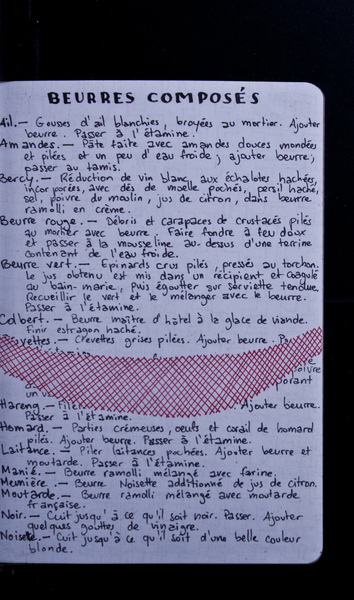 BEURRES COMPOSÉS
Ail.— Gousses d'ail blanchies, broyées au mortier. Ajouter
beurre. Passer à l'étamine.
Amandes.— Pâte faite avec amandes douces mondées
et pilées et un peu d'eau froide; ajouter beurre;
passer au tamis.
Bercy.— Réduction de vin blanc, aux échalotes hachées,
incorporées, avec dés de moelle pochés, persil haché,
sel, poivre du moulin, jus de citron, dans beurre
ramolli en crème.
Beurre rouge.— Débris et carapaces de crustacés pilés
au mortier avec beurre. Faire fondre à feu doux
et passer à la mousseline au-dessus d'une terrine
contenant de l'eau froide.
Beurre vert.— Epinards crus pilés, pressés au torchon.
Le jus obtenu est mis dans un récipient et coagulé
au bain-marie, puis égoutter sur serviette tendue.
Recueillir le vert et le mélanger avec le beurre.
Passer à l'étamine.
Colbert.— Beurre maître d'hôtel à la glace de viande.
Finir estragon haché.
Crevettes grises pilées. Ajouter beurre.
poivre
un
Hareng.— Ajouter beurre.
Passer à l'étamine.
Homard.— Parties crémeuses, oeufs et corail de homard
pilés. Ajouter beurre. Passer à l'étamine.
Laitance.— Piler laitances pochées. Ajouter beurre et
moutarde. Passer à l'étamine.
Manié.— Beurre ramolli mélangé avec farine.
Meunière.— Beurre Noisette additionné de jus de citron.
Moutarde.— Beurre ramolli mélangé avec moutarde
française.
Noir.— Cuit jusqu'à ce qu'il soit noir. Passer. Ajouter
quelques gouttes de vinaigre.
Noisette.— Cuit jusqu'à ce qu'il soit d'une belle couleur
blonde.